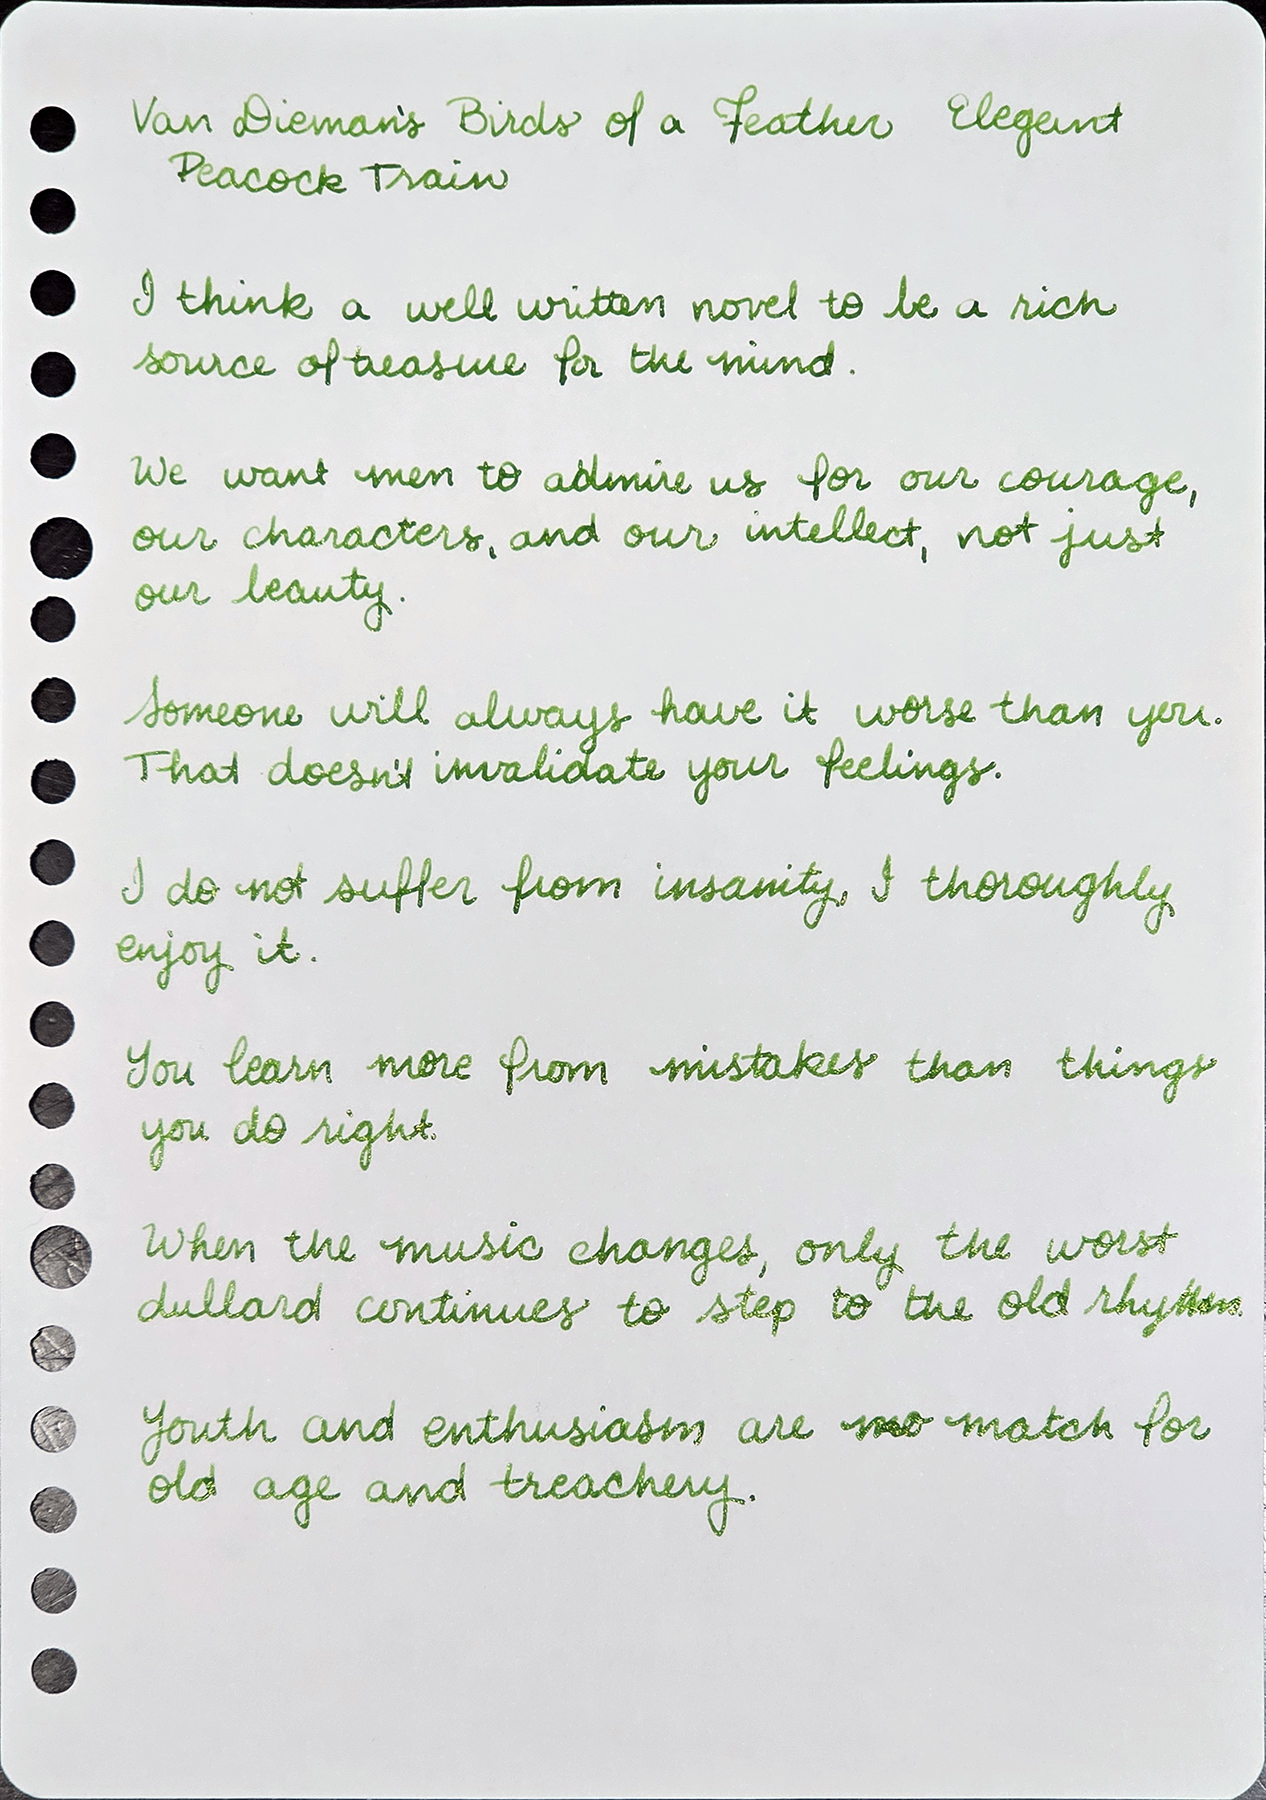 Van Dieman's Birds of a Feather Elegant
Peacock Train
I think a well written novel to be a rich
source of treasure for the mind.
We want men to admire us for our courage,
our characters, and our intellect, not just
our beauty.
Someone will always have it worse than you.
That doesn't invalidate your feelings.
I do not suffer from insanity, I thoroughly
enjoy it.
You learn more from mistakes than things
you do right.
When the music changes, only the worst
dullard continues to step to the old rhythm.
Youth and enthusiasm are no match for
old age and treachery.